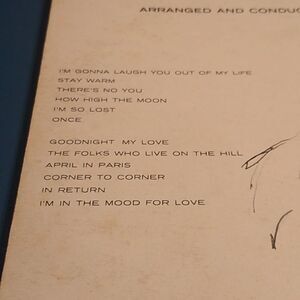 ARRANGED AND CONDUC
I'M GONNA LAUGH YOU OUT OF MY LIFE
STAY WARM
THERE'S NO YOU
HOW HIGH THE MOON
I'M SO LOST
ONCE
GOODNIGHT MY LOVE
THE FOLKS WHO LIVE ON THE HILL
APRIL IN PARIS
CORNER TO CORNER
IN RETURN
I'M IN THE MOOD FOR LOVE